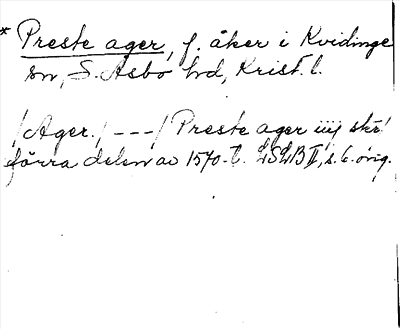 * Preste ager, f. åker i Kvidinge
sn, S. Åsbo hd, Krist. l.
/Ager./ ---/ Preste ager iiij skr!
förra delen av 1570-t. LSLB II, s. 6. orig.